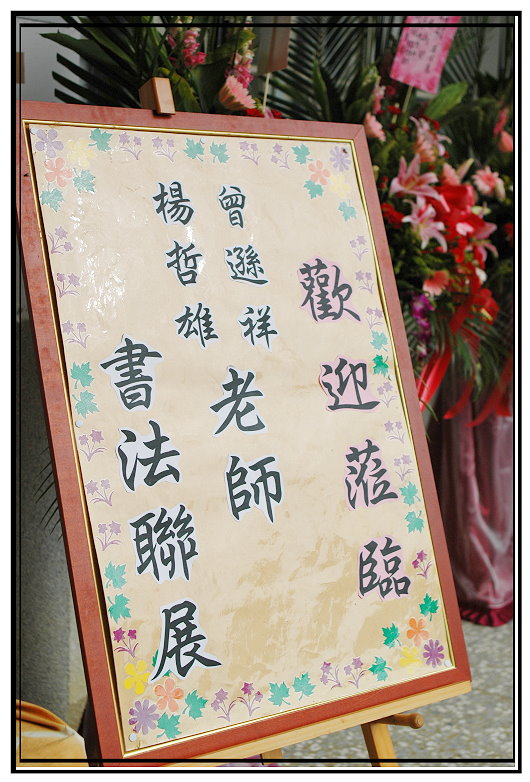 歡迎蒞臨
曾遜祥
楊哲雄
老師
書法聯展